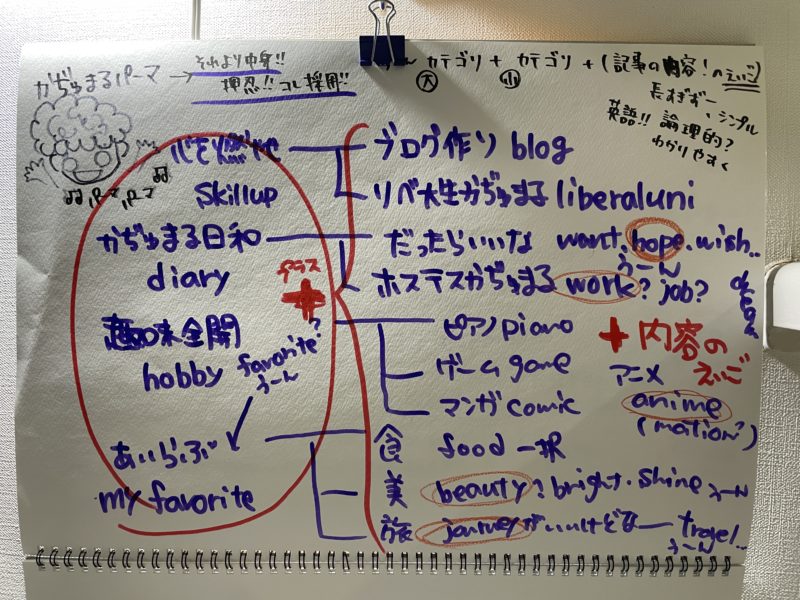 かぢゅまるパーマ → それより中身!!
押忍!! コレ採用!!
カテゴリ + カテゴリ + (記事の内容!のえいご)
大 小
長すぎずー、シンプル
英語!! 論理的?
わかりやすく
♫パーマ、パーマ
心を燃やせ
skillup
ブログ作り blog
リベ大生かぢゅまる liberaluni
かぢゅまる日和
diary
だったらいいな want.hope.wish..
うーん
ホステスかぢゅまる work? job?
プラス
+
趣味全開
hobby
favorite?
うーん
ピアノ piano
ゲーム game
マンガ comic
+ 内容の
えいご
アニメ
anime
(mation?)
あいらぶ♡
my favorite
食 food 一択
美 beauty? bright.shine うーん
旅 journeyがいいけどなー travel..
うーん